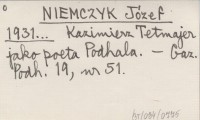 NIEMCZYK Józef
1931... Kazimierz Tetmajer
jako poeta Podhala. - Gaz.
Podh. 19, nr 51.